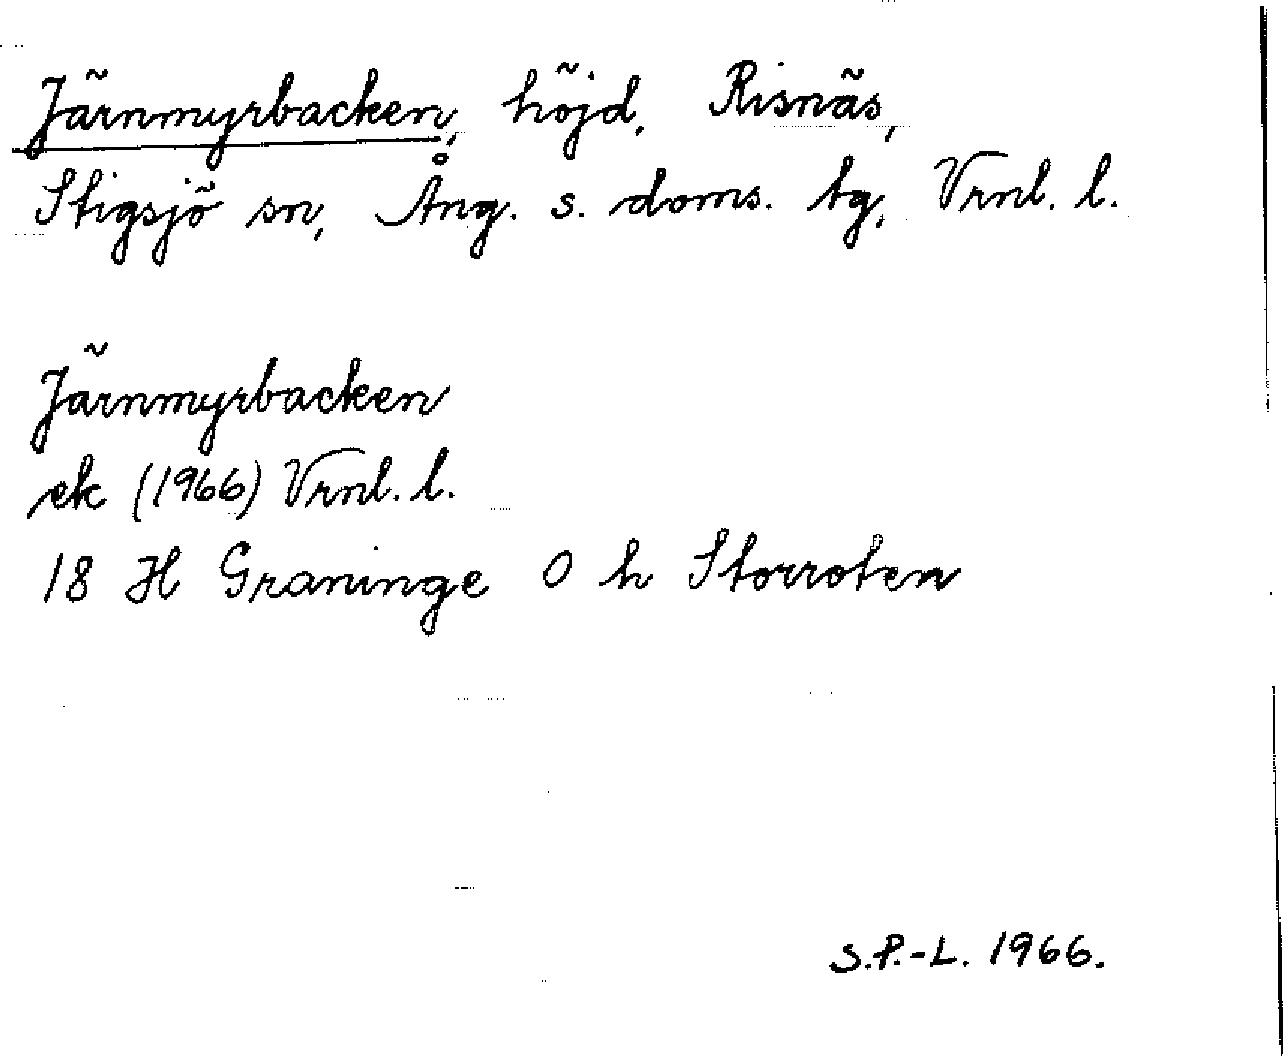 Järnmyrbacken, höjd, Risnäs,
Stigsjö sn, Ång. s. doms. tg, Vrnl. l.
Järnmyrbacken
ek (1966) Vrnl. l.
18 H Graninge O h Storroten
S.P.-L. 1966.